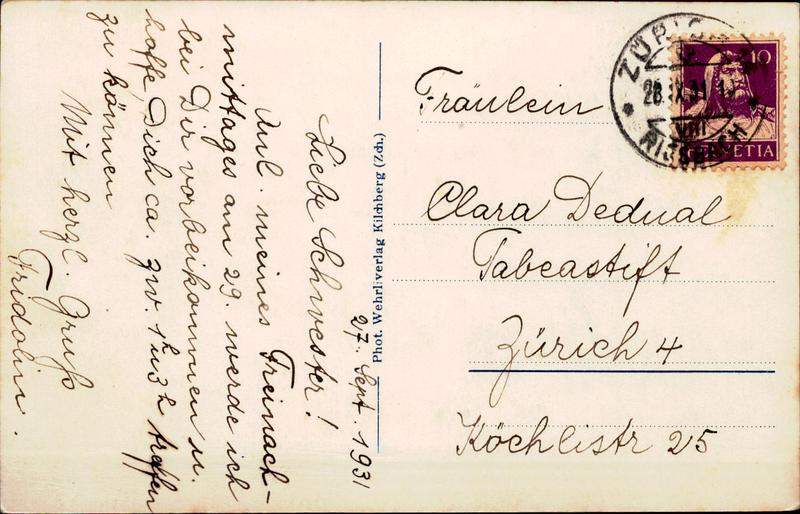 27. Sept. 1931
Liebe Schwester!
Anl. meines Freinach-
mittages am 29. werde ich
bei Dir vorbeikommen u.
hoffe, Dich ca. zw. 1h u 3h treffen
zu können
Mit herzl. Gruß
Fridolin.
Phot. Wehrliverlag Kilchberg (Zch.)
Fräulein
Clara Dedual
Tabeastift
Zürich 4
Köchlistr 25
ZÜRICH
28.IX.31
VIII
RIESBACH
10
HELVETIA